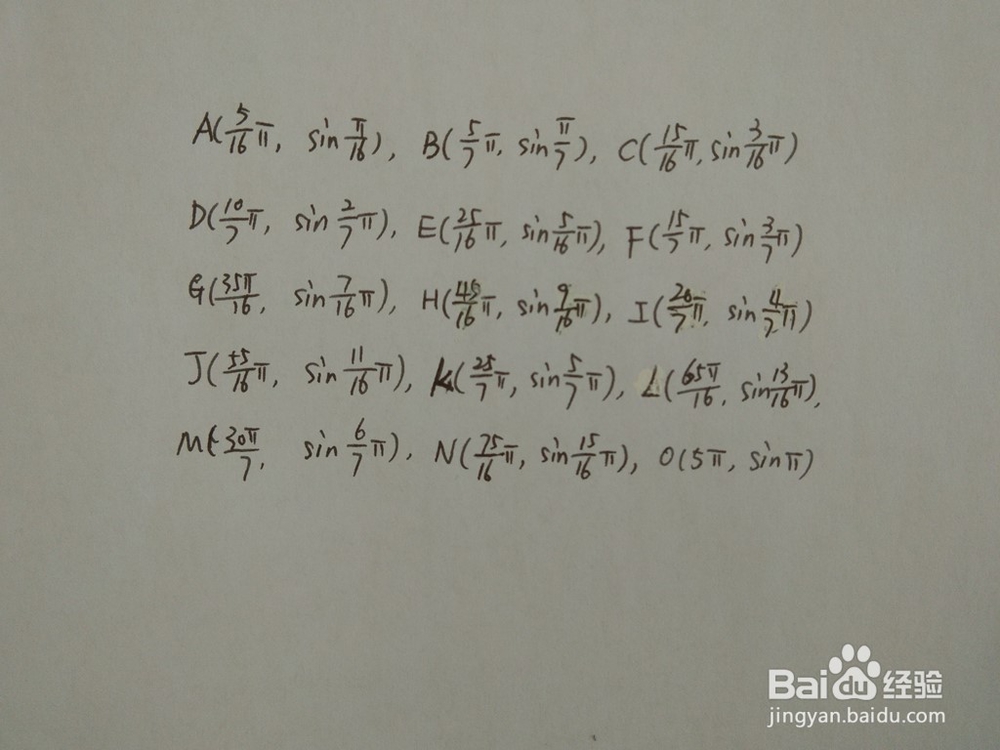 A(5/16 π, sin π/16), B(5/7 π, sin π/7), C(15/16 π, sin 3/16 π)
D(10/7 π, sin 2/7 π), E(25/16 π, sin 5/16 π), F(15/7 π, sin 3/7 π)
G(35π/16, sin 7/16 π), H(45/16 π, sin 9/16 π), I(20/7 π, sin 4/7 π)
J(55/16 π, sin 11/16 π), K(25/7 π, sin 5/7 π), L(65π/16, sin 13/16 π),
M(30π/7, sin 6/7 π), N(75/16 π, sin 15/16 π), O(5π, sinπ)
Baidu经验
jingyan.baidu.com